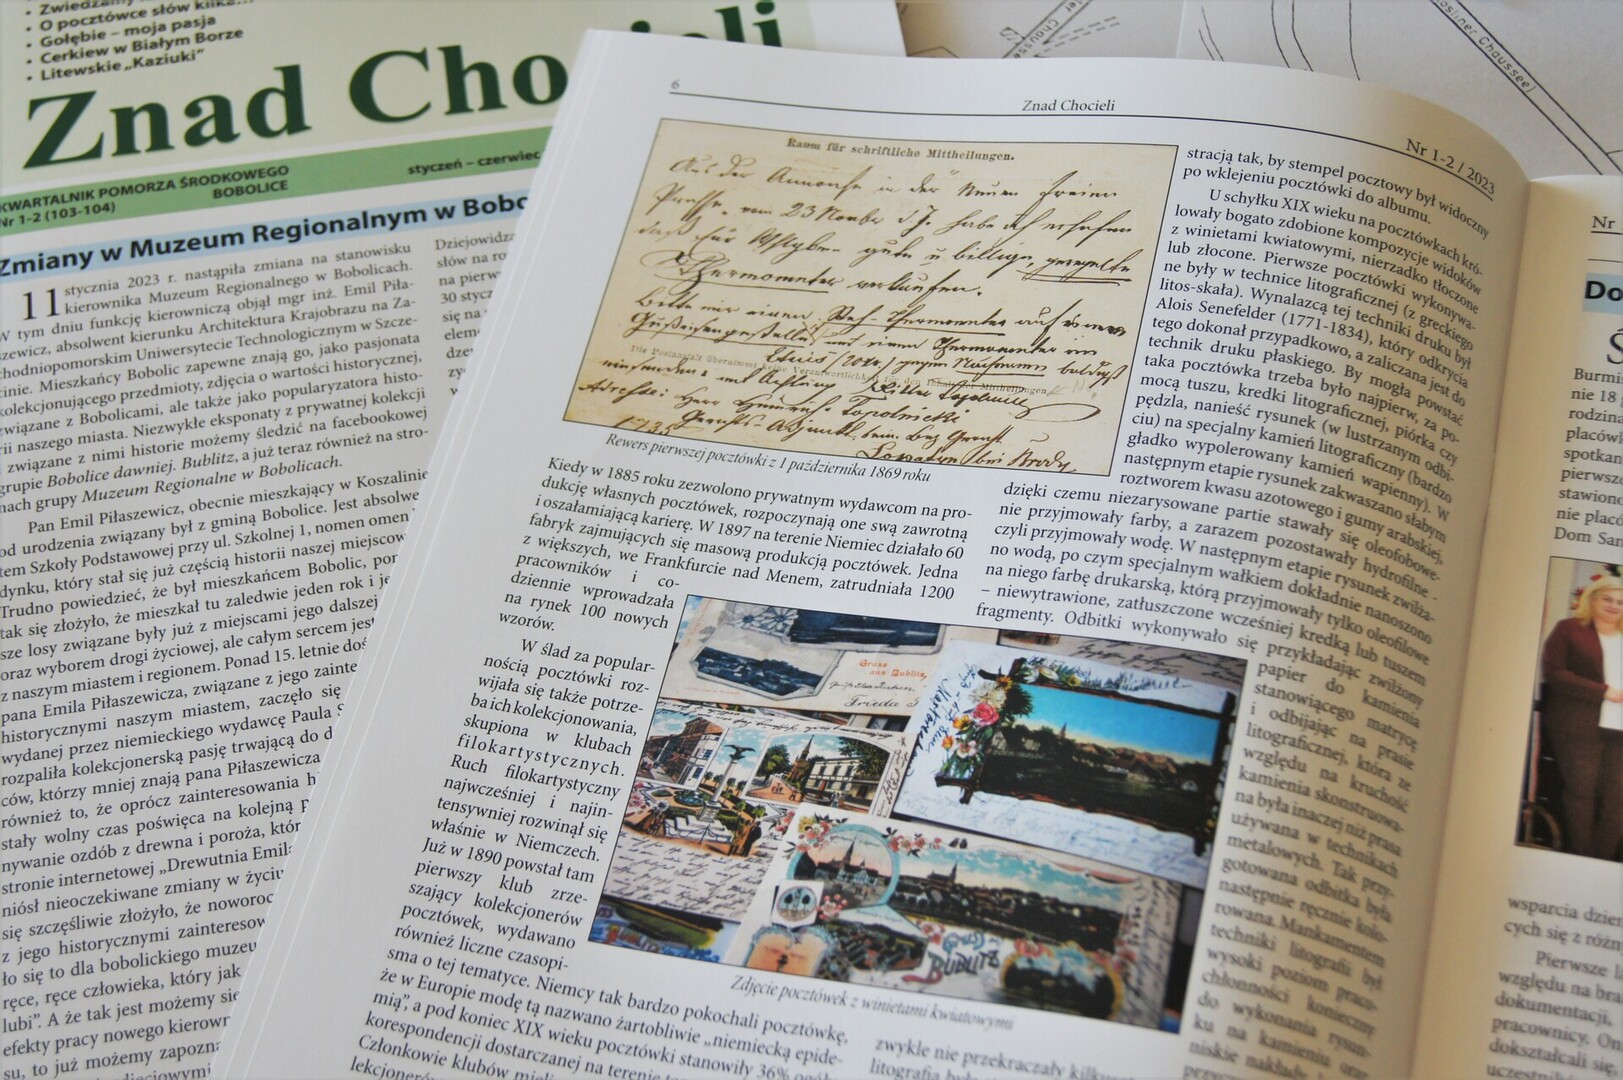 • O pocztówce słów kilka...
• Gołębie – moja pasja
• Cerkiew w Białym Borze
• Litewskie „Kaziuki”
Znad Chocieli
KWARTALNIK POMORZA ŚRODKOWEGO
BOBOLICE
Nr 1-2 (103-104)
styczeń – czerwiec
Zmiany w Muzeum Regionalnym w Bobo
11 stycznia 2023 r. nastąpiła zmiana na stanowisku
kierownika Muzeum Regionalnego w Bobolicach.
W tym dniu funkcję kierowniczą objął mgr inż. Emil Piła-
szewicz, absolwent kierunku Architektura Krajobrazu na Za-
chodniopomorskim Uniwersytecie Technologicznym w Szcze-
cinie. Mieszkańcy Bobolic zapewne znają go, jako pasjonata
kolekcjonującego przedmioty, zdjęcia o wartości historycznej,
związane z Bobolicami, ale także jako popularyzatora histo-
rii naszego miasta. Niezwykłe eksponaty z prywatnej kolekcji
i związane z nimi historie możemy śledzić na facebookowej
grupie Bobolice dawniej. Bublitz, a już teraz również na stro-
nach grupy Muzeum Regionalne w Bobolicach.
Pan Emil Piłaszewicz, obecnie mieszkający w Koszalinie
od urodzenia związany był z gminą Bobolice. Jest absolwe
tem Szkoły Podstawowej przy ul. Szkolnej 1, nomen omen
dynku, który stał się już częścią historii naszej miejscow
Trudno powiedzieć, że był mieszkańcem Bobolic, pon
tak się złożyło, że mieszkał tu zaledwie jeden rok i je
sze losy związane były już z miejscami jego dalszej
oraz wyborem drogi życiowej, ale całym sercem jest
z naszym miastem i regionem. Ponad 15. letnie doś
pana Emila Piłaszewicza, związane z jego zainte
historycznymi naszym miastem, zaczęło się
wydanej przez niemieckiego wydawcę Paula S
rozpaliła kolekcjonerską pasję trwającą do d
ców, którzy mniej znają pana Piłaszewicza
również to, że oprócz zainteresowania h
stały wolny czas poświęca na kolejną p
nywanie ozdób z drewna i poroża, któr
stronie internetowej „Drewutnia Emila
niósł nieoczekiwane zmiany w życiu
się szczęśliwie złożyło, że noworoc
z jego historycznymi zainteresow
ło się to dla bobolickiego muzeu
ręce, ręce człowieka, który jak
lubi”. A że tak jest możemy się
efekty pracy nowego kierown
su, to już możemy zapozna
Dziejowidza
słów na ro
na pierw
30 stycz
się na
elem
dzę
6
Znad Chocieli
Nr 1-2 / 2023
Raum für schriftliche Mittheilungen.
Rewers pierwszej pocztówki z 1 października 1869 roku
Kiedy w 1885 roku zezwolono prywatnym wydawcom na pro-
dukcję własnych pocztówek, rozpoczynają one swą zawrotną
i oszałamiającą karierę. W 1897 na terenie Niemiec działało 60
fabryk zajmujących się masową produkcją pocztówek. Jedna
z większych, we Frankfurcie nad Menem, zatrudniała 1200
pracowników i co-
dziennie wprowadzała
na rynek 100 nowych
wzorów.
W ślad za popular-
nością pocztówki roz-
wijała się także potrze-
ba ich kolekcjonowania,
skupiona w klubach
filokartystycznych.
Ruch filokartystyczny
najwcześniej i najin-
tensywniej rozwinął się
właśnie w Niemczech.
Już w 1890 powstał tam
pierwszy klub zrze-
szający kolekcjonerów
pocztówek, wydawano
również liczne czasopi-
sma o tej tematyce. Niemcy tak bardzo pokochali pocztówkę,
że w Europie modę tą nazwano żartobliwie „niemiecką epide-
mią”, a pod koniec XIX wieku pocztówki stanowiły 36% ogółu
korespondencji dostarczanej na terenie
Członkowie klubów
Gruss
aus Bublitz
Frieda
Gruss
BUBLITZ
Zdjęcie pocztówek z winietami kwiatowymi
stracją tak, by stempel pocztowy był widoczny
po wklejeniu pocztówki do albumu.
U schyłku XIX wieku na pocztówkach kró-
lowały bogato zdobione kompozycje widoków
z winietami kwiatowymi, nierzadko tłoczone
lub złocone. Pierwsze pocztówki wykonywa-
ne były w technice litograficznej (z greckiego
litos-skała). Wynalazcą tej techniki druku był
Alois Senefelder (1771-1834), który odkrycia
tego dokonał przypadkowo, a zaliczana jest do
technik druku płaskiego. By mogła powstać
taka pocztówka trzeba było najpierw, za po-
mocą tuszu, kredki litograficznej, piórka czy
pędzla, nanieść rysunek (w lustrzanym odbi-
ciu) na specjalny kamień litograficzny (bardzo
gładko wypolerowany kamień wapienny). W
następnym etapie rysunek zakwaszano słabym
roztworem kwasu azotowego i gumy arabskiej,
dzięki czemu niezarysowane partie stawały się oleofobowe-
nie przyjmowały farby, a zarazem pozostawały hydrofilne -
czyli przyjmowały wodę. W następnym etapie rysunek zwilża-
no wodą, po czym specjalnym wałkiem dokładnie nanoszono
na niego farbę drukarską, którą przyjmowały tylko oleofilowe
– niewytrawione, zatłuszczone wcześniej kredką lub tuszem
fragmenty. Odbitki wykonywało się przykładając zwilżony
papier do kamienia
stanowiącego matrycę
i odbijając na prasie
litograficznej, która ze
względu na kruchość
kamienia skonstruowa-
na była inaczej niż prasa
używana w technikach
metalowych. Tak przy-
gotowana odbitka była
następnie ręcznie kolo-
rowana. Mankamentem
techniki litografii był
wysoki poziom praco-
chłonności konieczny
do wykonania rysun-
ku na kamieniu oraz
niskie nakłady
zwykle nie przekraczały
litografia
Nr
Do
S
Burmi
nie 18
rodzina
placów
spotkan
pierwsz
stawion
nie plac
Dom San
wsparcia dzie
cych się z różn
Pierwsze
względu na bra
dokumentacji,
pracownicy. On
dokształcali się